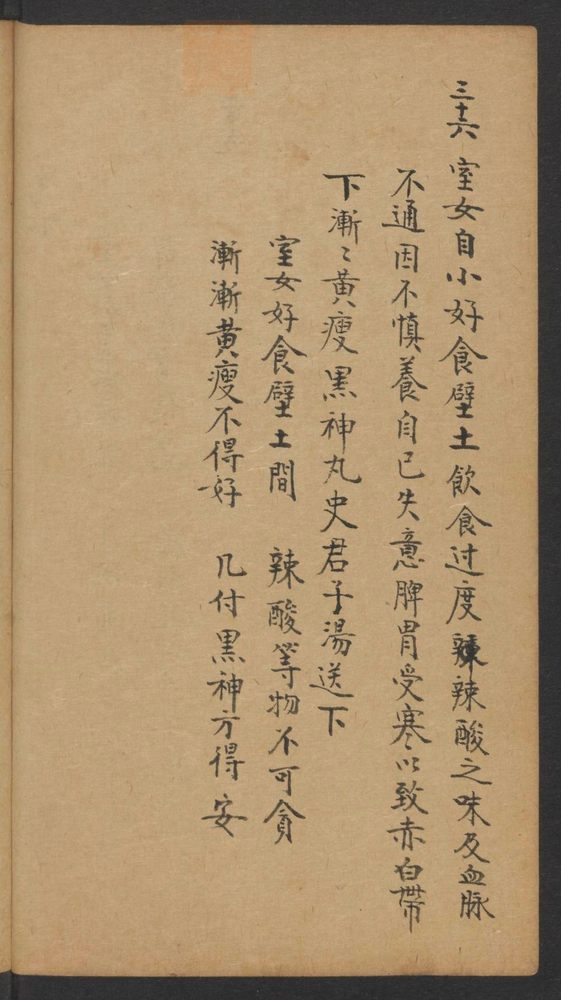 三十六 室女自小好食壁土飲食过度辣辣酸之味及血脉
不通因不慎養自己失意脾胃受寒以致赤白帶
下漸〻黃瘦黑神丸史君子湯送下
室女好食壁土間 辣酸等物不可貪
漸漸黃瘦不得好 几付黑神方得安